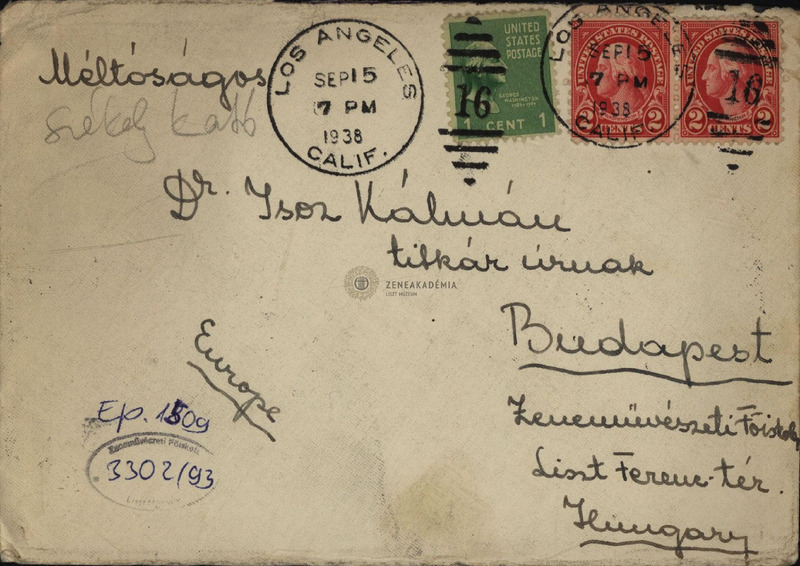 Méltóságos
Székely Kató
LOS ANGELES
SEP 15
7 PM
1938
CALIF.
16
UNITED
STATES
POSTAGE
GEORGE
WASHINGTON
1 CENT 1
LOS ANGELES
SEP 15
7 PM
1938
CALIF.
UNITED STATES POSTAGE
2 CENTS 2
UNITED STATES POSTAGE
2 CENTS 2
16
Dr. Isoz Kálmán
titkár úrnak
ZENEAKADÉMIA
LISZT MÚZEUM
Europe
Budapest
Zeneművészeti Főiskola
Liszt Ferenc-tér.
Hungary
Ep. 1509
Zeneművészeti Főiskola
3302/93